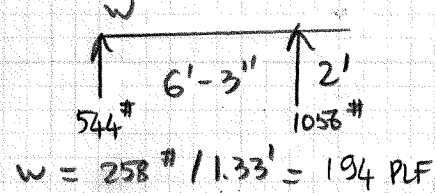 W
6'-3" 2'
544# 1056#
W = 258# / 1.33' = 194 PLF